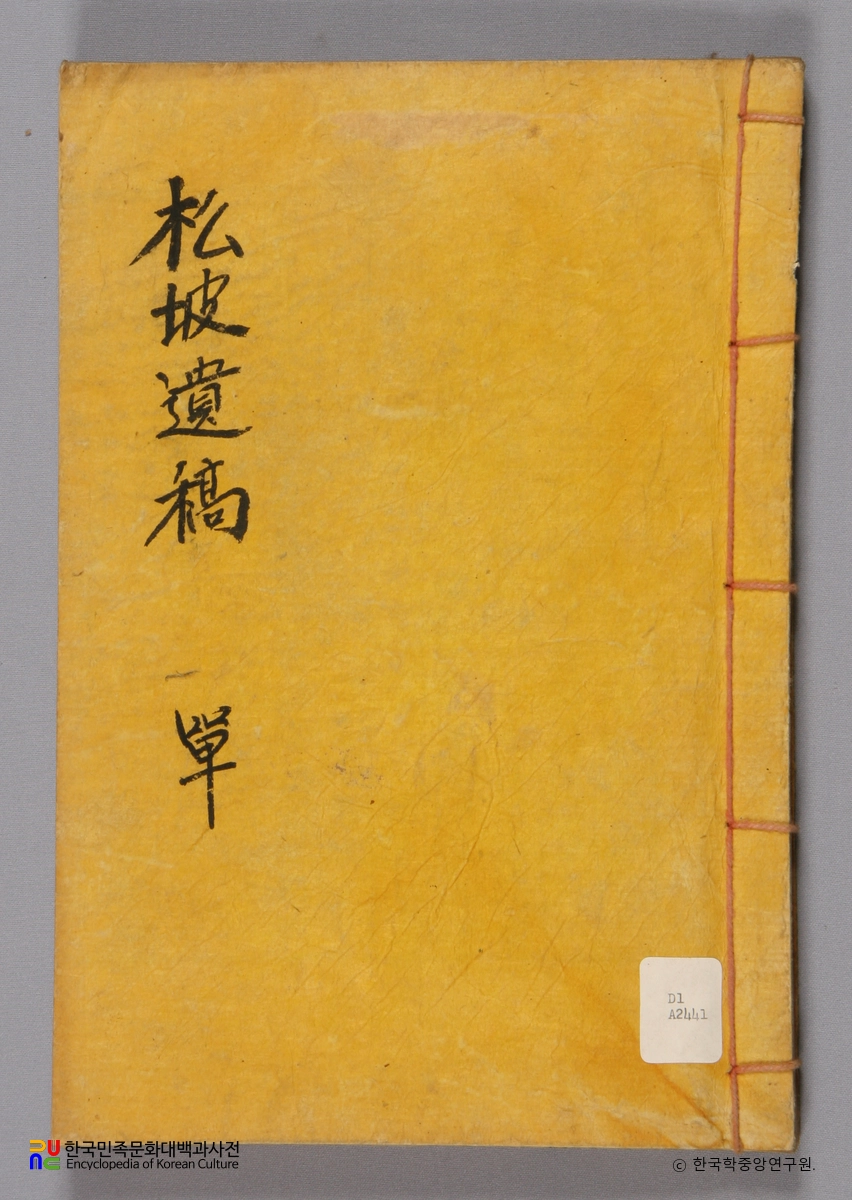 松坡遺稿 單
D1
A2441
한국민족문화대백과사전
Encyclopedia of Korean Culture
© 한국학중앙연구원.